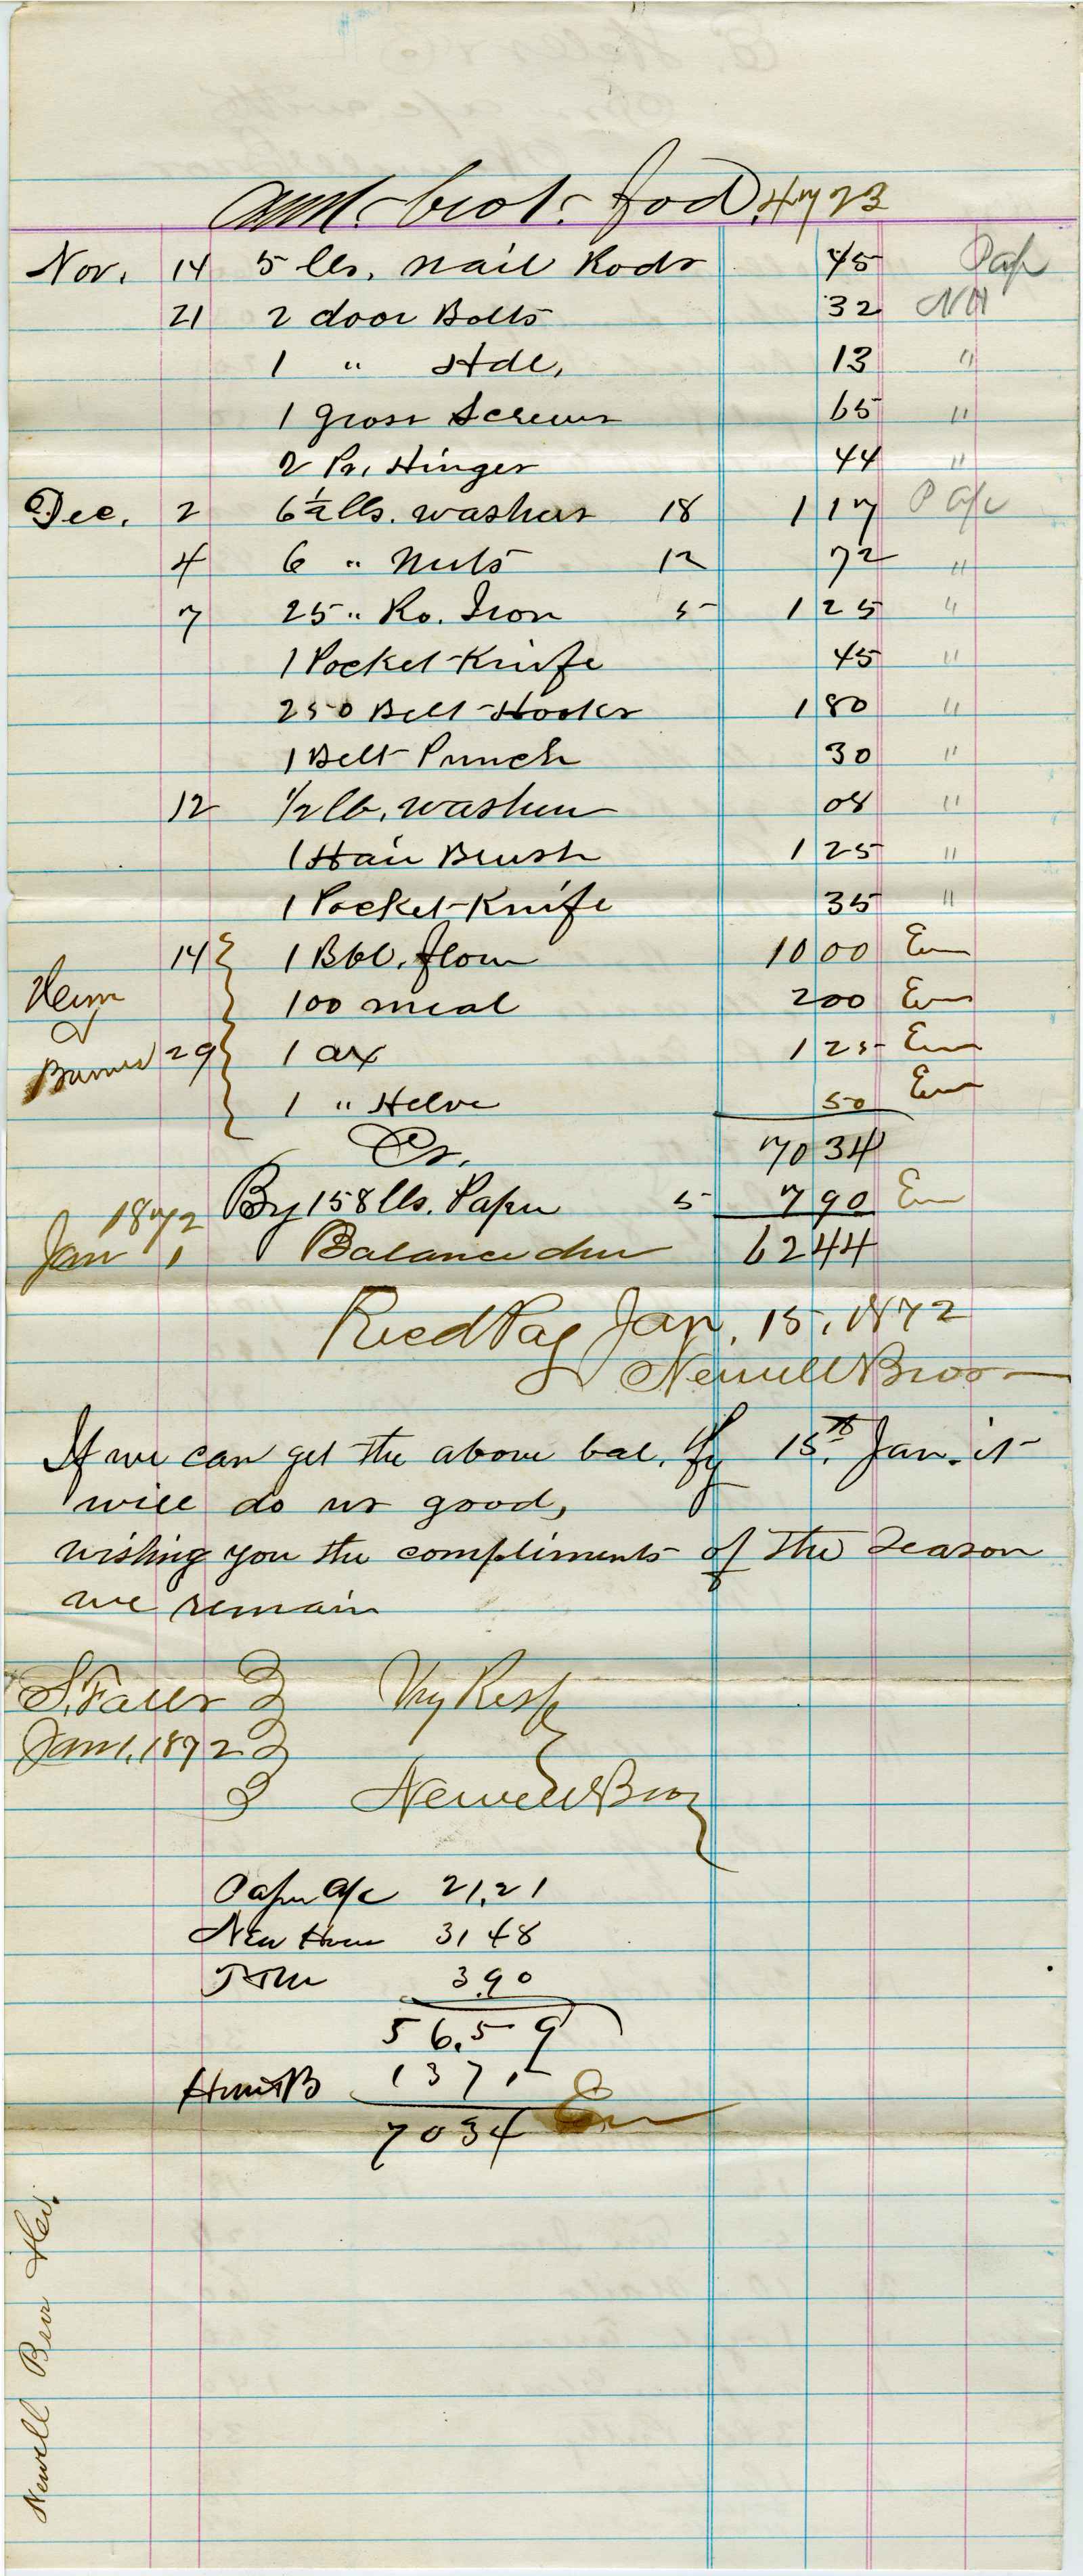 Amt. brot. fod. 47 23
Nov. 14 5 lbs. Nail Rods 45 Pap
21 2 door Bolts 32 NH
1 " Hdl, 13 "
1 Gross Screws 65 "
2 Pr. Hinges 44 "
Dec. 2 6½ lbs. washers 18 1 17 P a/c
4 6 " Nuts 12 72 "
7 25 " Ro. Iron 5 1 25 "
1 Pocket Knife 45 "
250 Belt Hooks 1 80 "
1 Belt Punch 30 "
12 ½ lb. washers 08 "
1 Hair Brush 1 25 "
1 Pocket Knife 35 "
14 1 Bbl. flour 10 00 Em
100 meal 2 00 Em
29 1 ax 1 25 Em
1 " Helve 50 Em
Cr. 70 34
By 158 lbs. Paper 5 7 90 Em
1872
Jan 1 Balance due 62 44
Recd Pay Jan. 15, 1872
Newell Bros
If we can get the above bal. by 15th Jan. it
will do us good,
wishing you the compliments of the Season
we remain
S. Falls Vry Resp
Jan 1, 1872
Newell Bros
Paper a/c 21,21
New House 31 48
3.90
56.59
13 75
7034 Em
Newell Bros